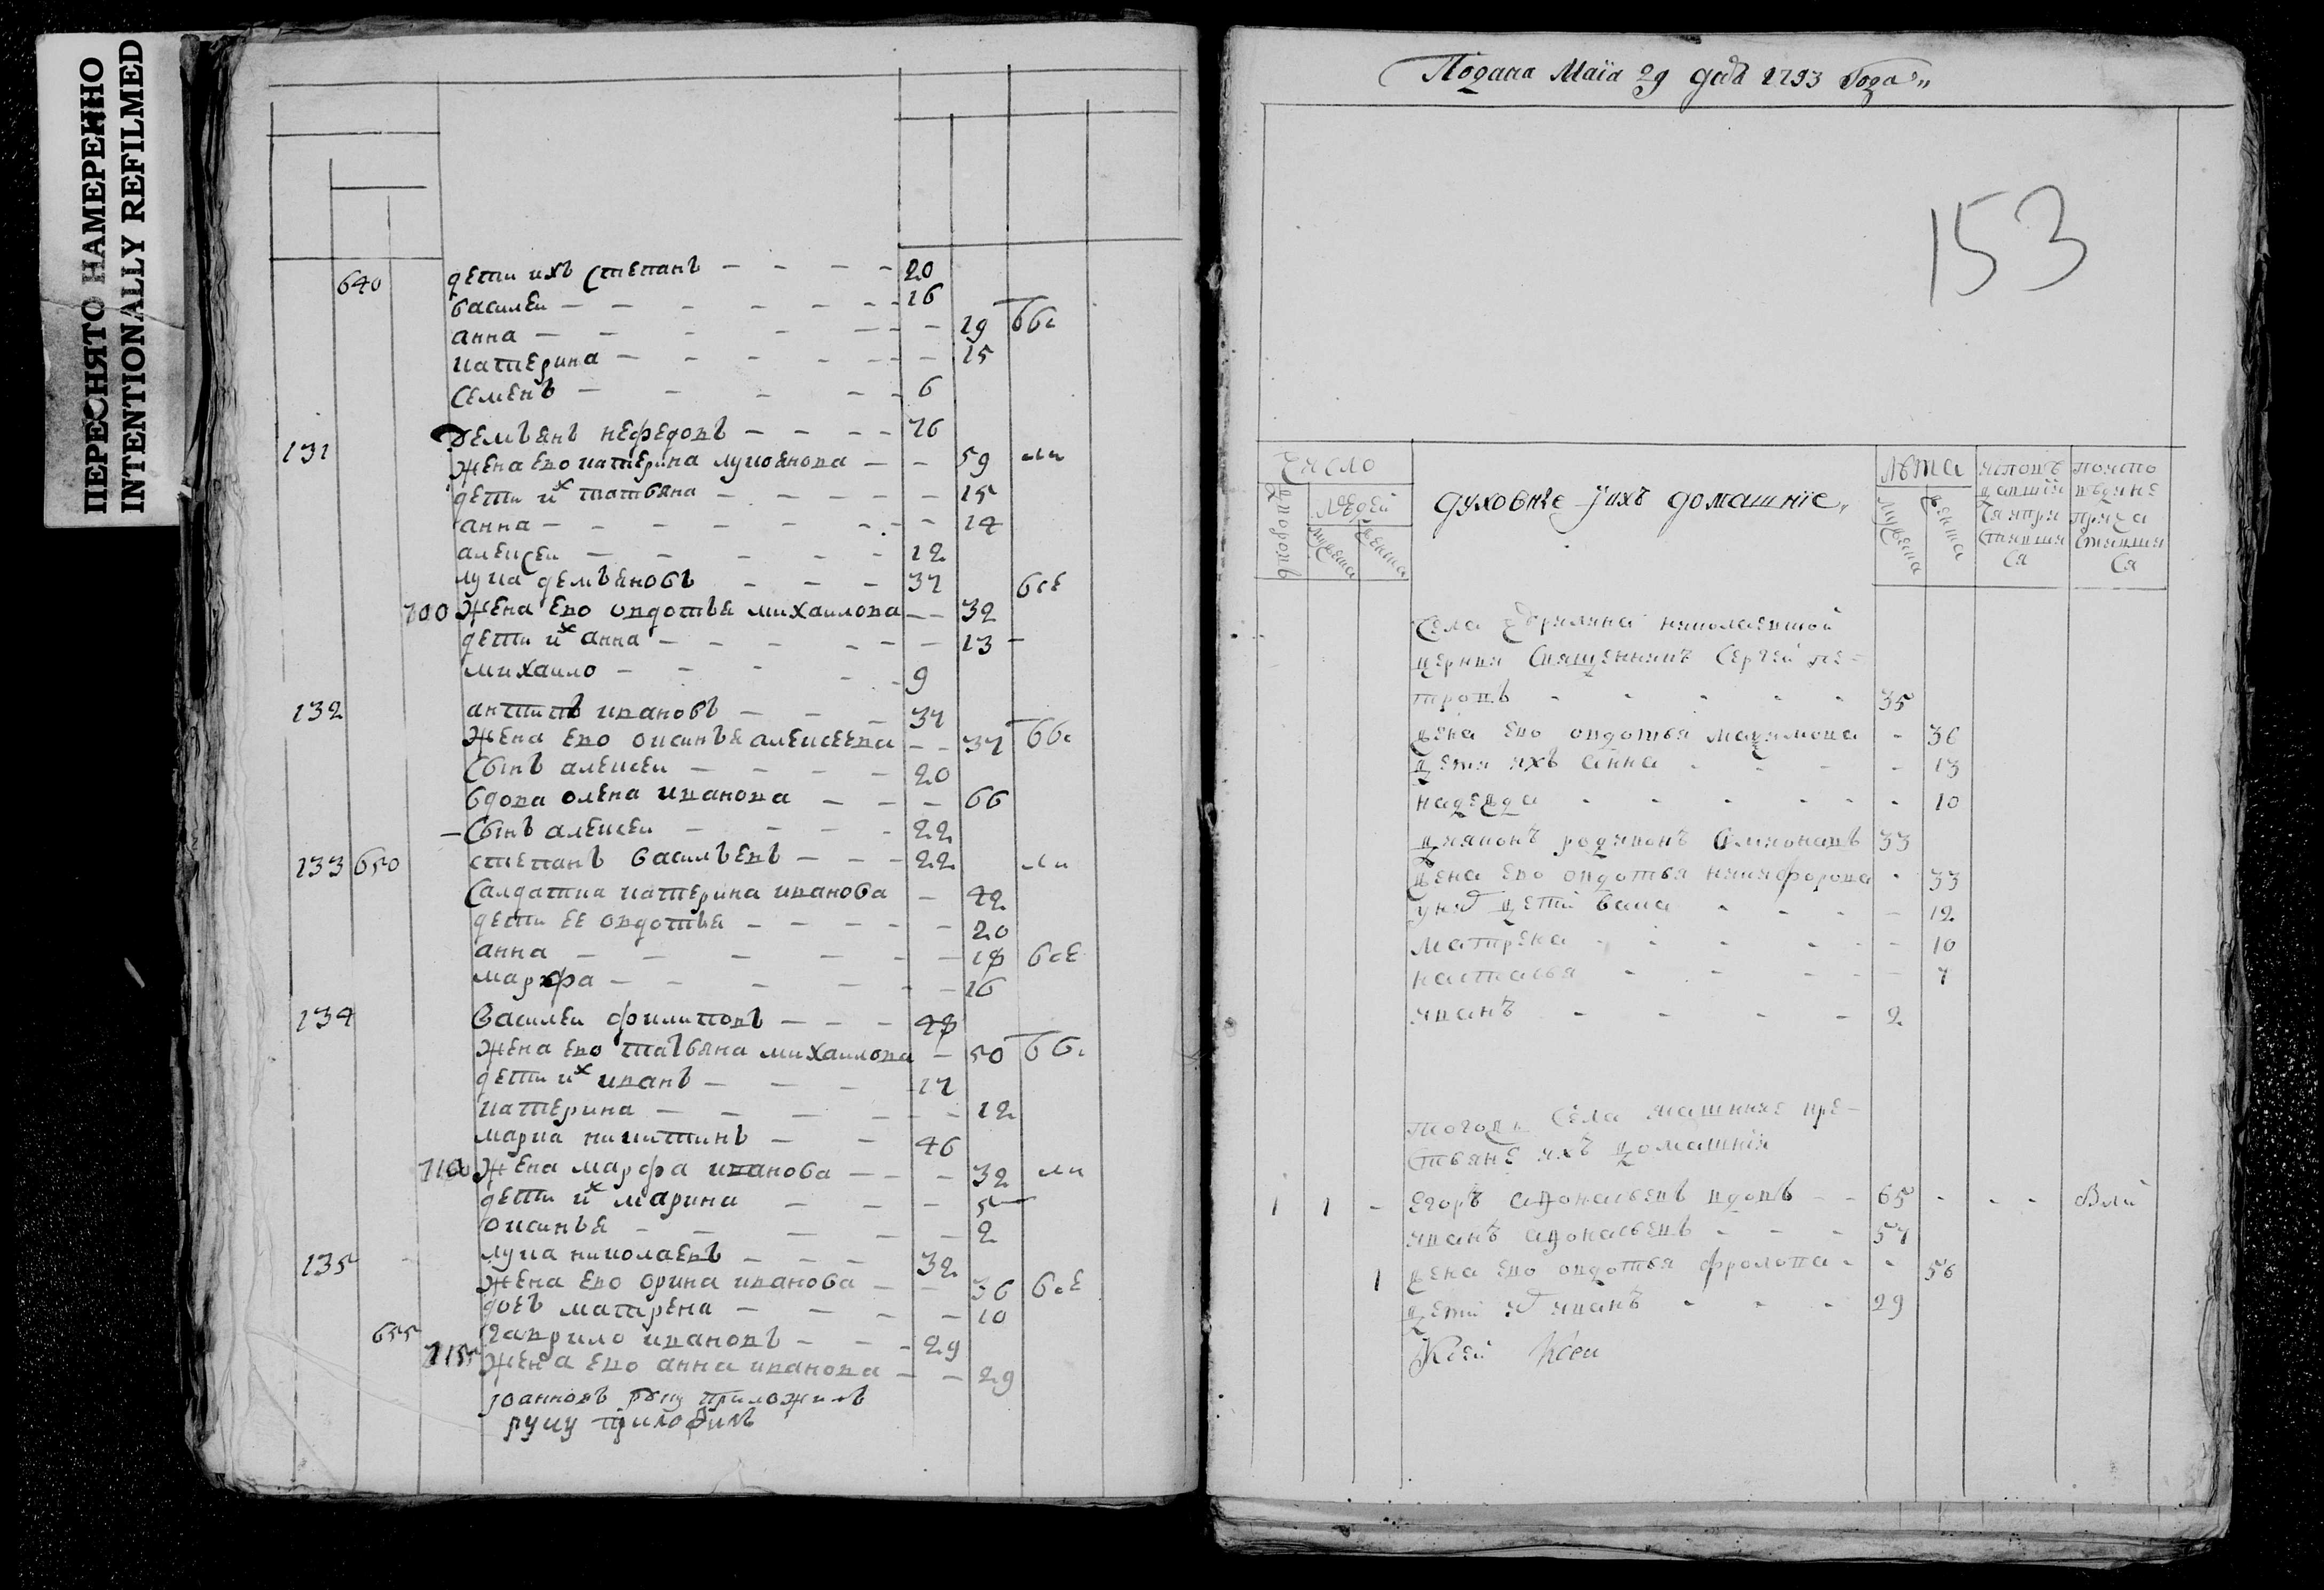 ПЕРЕСНЯТО НАМЕРЕННО
INTENTIONALLY REFILMED
640 дети ихъ Степанъ 20
василеи 16
анна 19
катерина 15
Семенъ 6
131 Демьянъ нефедовъ 76
жена ево катерина лукоянова 59
дети их татьяна 15
анна 14
алексеи 12
лука демьяновъ 37 все
700 жена ево овдотья михаилова 32
дети их анна 13
михаило 9
132 антипъ ивановъ 37
жена ево оксинья алексеева 37
Сынъ алексеи 20
вдова олена иванова 66
Сынъ алексеи 22
133 650 степанъ васильевъ 22
Салдатка катерина иванова 42
дети ее овдотья 20
анна 18 все
марфа 16
134 василеи филиповъ 48
жена ево татьяна михаилова 50
дети их иванъ 17
катерина 12
марка никитинъ 46
710 жена марфа иванова 32
дети их марина 5
оксинья 2
135 лука николаевъ 32
жена ево орина иванова 36 все
дочь матрена 10
655 гаврило ивановъ 29
715 жена ево анна иванова 29
руку приложилъ
руку приложилъ
Подана Маїа 29 дня 1793 года
153
Число
дворовъ
людей
мужеска
женска
духовные и ихъ домашние
лѣта
мужеска
женска
церкви Священникъ Сергей пе-
тровъ 35
жена ево овдотья максимова 36
дети ихъ анна 13
надежда 10
диаконъ родионъ 33
жена ево овдотья никифорова 33
у них дети 12
матрена 10
настасья 7
иванъ 2
тогожъ Села кре-
стьяне ихъ домашнїя
1 1 - егоръ афонасьевъ вдовъ 65
иванъ афонасьевъ 57
1 жена ево овдотья фролова 56
дети их иванъ 29